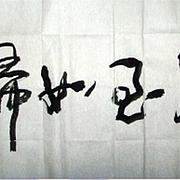 至如歸